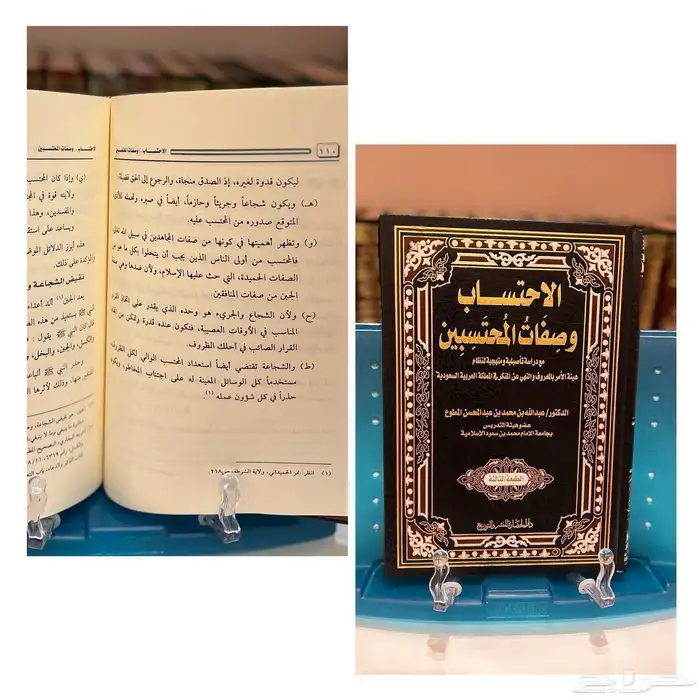 ١١٠
الاحتساب وصفات المحتسبين
ليكون قدوة لغيره، إذ الصدق منجاة، والرجوع إلى الحق فضيلة.
(هـ) ويكون شجاعاً وجريئاً وحازماً، أيضاً في صبره وتحمله للأذى
المتوقع صدوره من المحتسب عليه.
(و) وتظهر أهميتها في كونها من صفات المجاهدين في سبيل الله تعالى
فالمحتسب من أولى الناس الذين يجب أن يتحلوا بكل ما هو من
الصفات الحميدة، التي حث عليها الإسلام، ولأن ضدها وهي صفة
الجبن من صفات المنافقين.
(ح) ولأن الشجاع والجريء هو وحده الذي يقدر على اتخاذ القرار
المناسب في الأوقات العصيبة، فتكون عنده قدرة وتمكن من إتخاذ
القرار الصائب في أحلك الظروف.
(ط) والشجاعة تقتضي أيضاً استعداد المحتسب الموالي لكل الظروف
مستخدماً كل الوسائل المعينة له على اجتناب المخاطر، ويكون
حذراً في كل شؤون عمله (١).
(١) انظر نمر الحميداني، ولاية الشرطة، ص٢١٨.
الاحتساب وصفات المحتسبين
(ي) وإذا كان المحتسب
ولايته قوة في المجتمع
والمفسدين، وهذا
ويساعد على استقرار
هذه أبرز الدلائل
والمؤكدة على ذلك.
نقيض الشجاعة
بعد الجبن (١)
كان النبي ﷺ يقول
والكسل، والجبن، والبخل،
الاحتساب
وصفات المحتسبين
مع دراسة تأصيلية ومنهجية لنظام
هيئة الأمر بالمعروف والنهي عن المنكر في المملكة العربية السعودية
الدكتور/ عبدالله بن محمد بن عبدالمحسن المطوع
عضو هيئة التدريس
بجامعة الإمام محمد بن سعود الإسلامية
الطبعة الثالثة
دار الحضارة للنشر والتوزيع
حراج